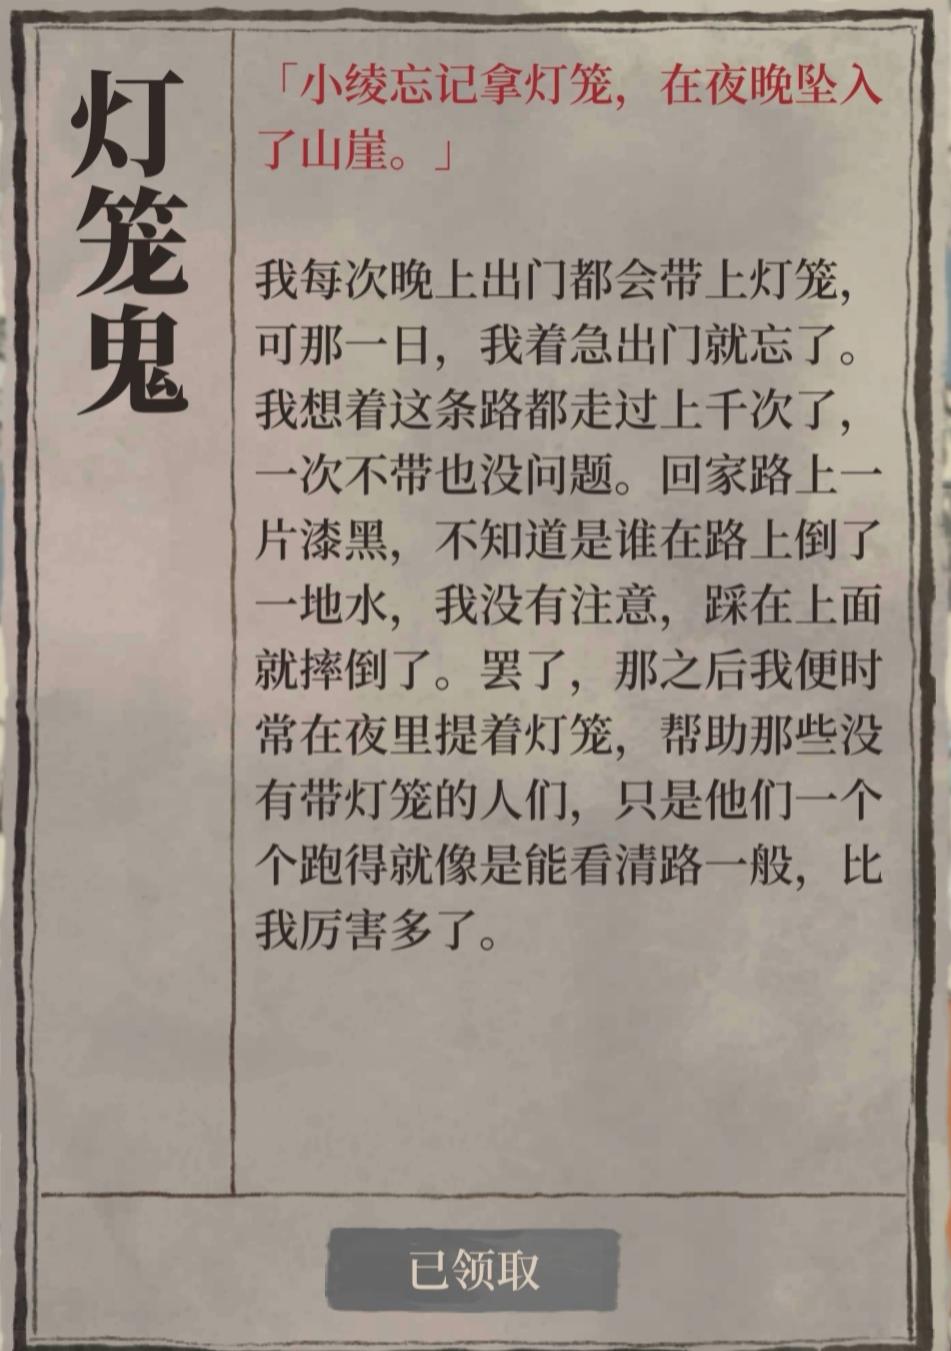 灯笼鬼
「小绫忘记拿灯笼，在夜晚坠入
了山崖。」
我每次晚上出门都会带上灯笼，
可那一日，我着急出门就忘了。
我想着这条路都走过上千次了，
一次不带也没问题。回家路上一
片漆黑，不知道是谁在路上倒了
一地水，我没有注意，踩在上面
就摔倒了。罢了，那之后我便时
常在夜里提着灯笼，帮助那些没
有带灯笼的人们，只是他们一个
个跑得就像是能看清路一般，比
我厉害多了。
已领取